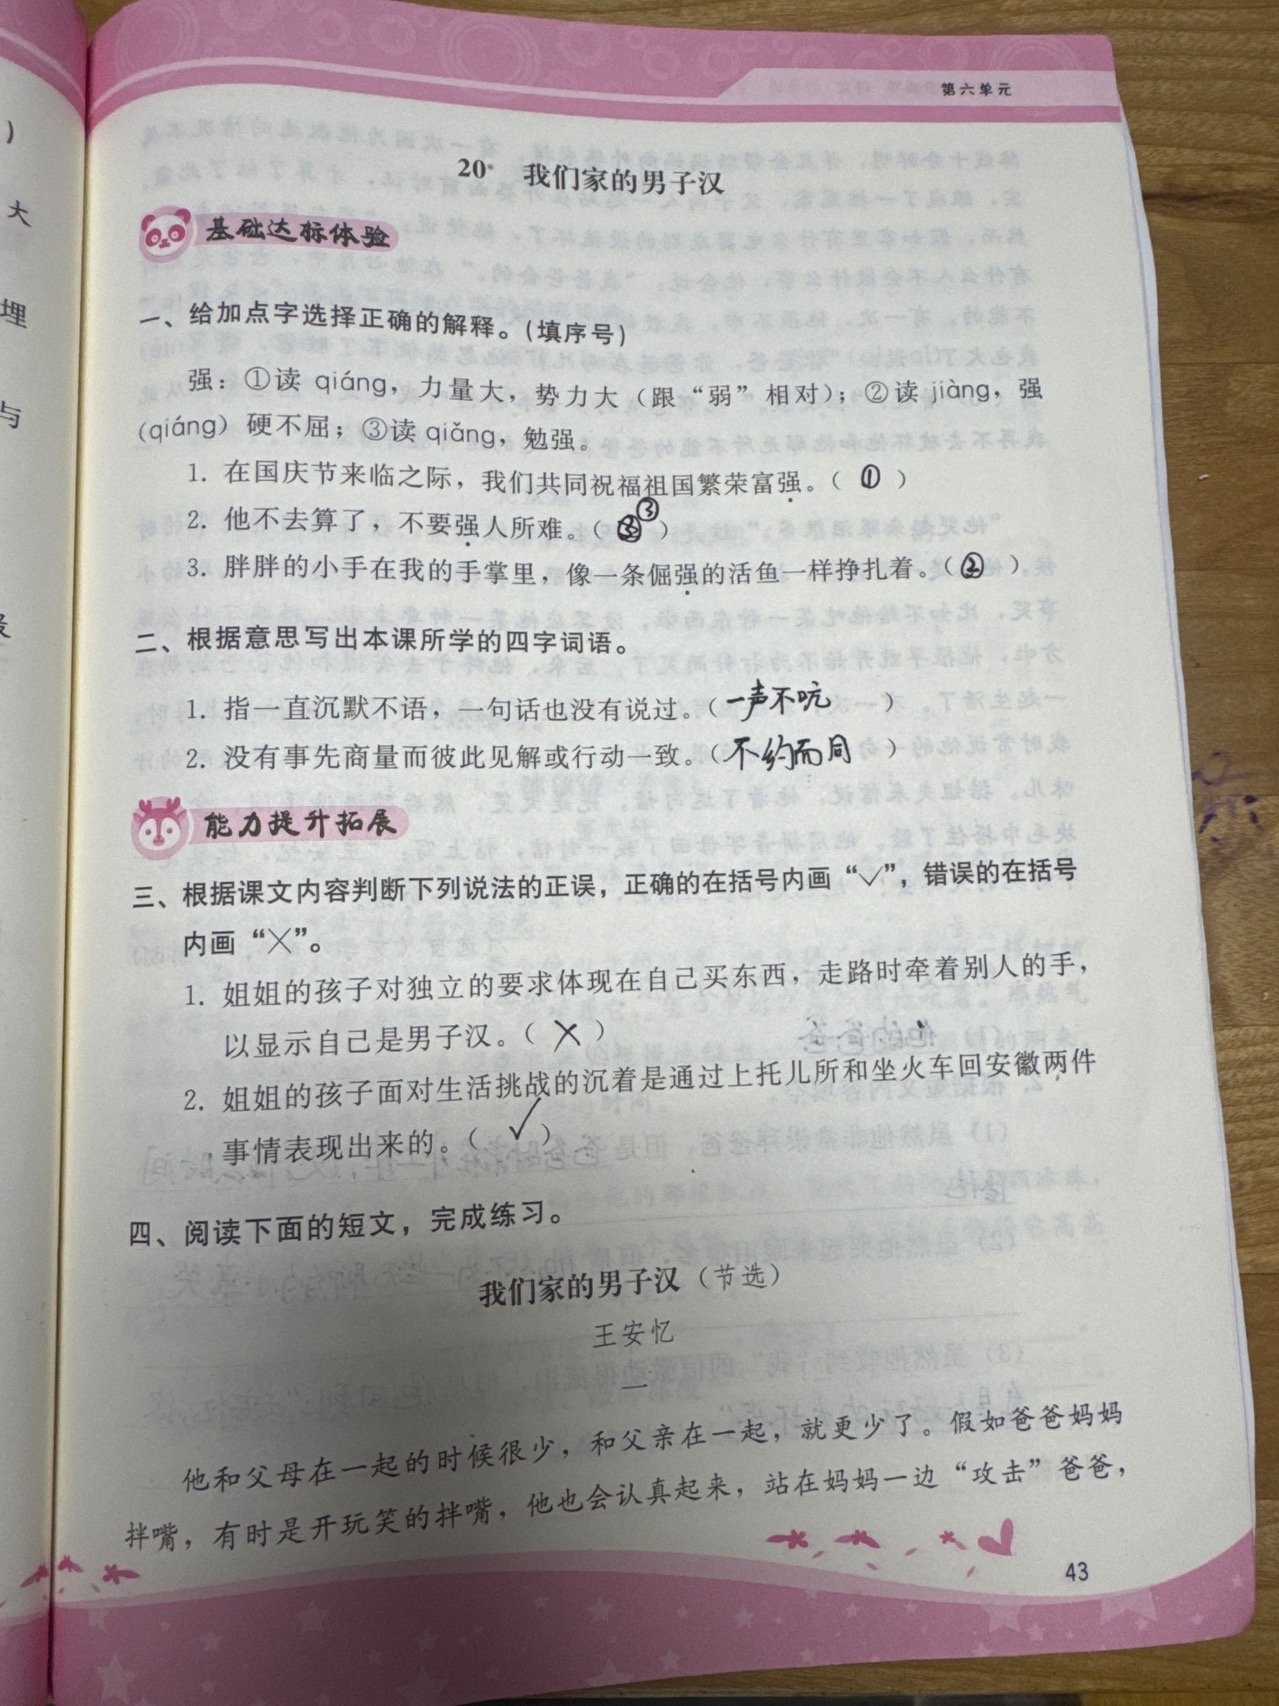 第六单元
20* 我们家的男子汉
基础达标体验
一、给加点字选择正确的解释。(填序号)
强：①读 qiáng，力量大，势力大（跟“弱”相对）；②读 jiàng，强
(qiáng) 硬不屈；③读 qiǎng，勉强。
1. 在国庆节来临之际，我们共同祝福祖国繁荣富强。（ ① ）
2. 他不去算了，不要强人所难。（ ③ ）
3. 胖胖的小手在我的手掌里，像一条倔强的活鱼一样挣扎着。（ ② ）
二、根据意思写出本课所学的四字词语。
1. 指一直沉默不语，一句话也没有说过。（一声不吭 ）
2. 没有事先商量而彼此见解或行动一致。（不约而同 ）
能力提升拓展
三、根据课文内容判断下列说法的正误，正确的在括号内画“√”，错误的在括号
内画“×”。
1. 姐姐的孩子对独立的要求体现在自己买东西，走路时牵着别人的手，
以显示自己是男子汉。（ × ）
2. 姐姐的孩子面对生活挑战的沉着是通过上托儿所和坐火车回安徽两件
事情表现出来的。（ √ ）
四、阅读下面的短文，完成练习。
我们家的男子汉（节选）
王安忆
一
他和父母在一起的时候很少，和父亲在一起，就更少了。假如爸爸妈妈
拌嘴，有时是开玩笑的拌嘴，他也会认真起来，站在妈妈一边“攻击”爸爸，
43
大
埋
与